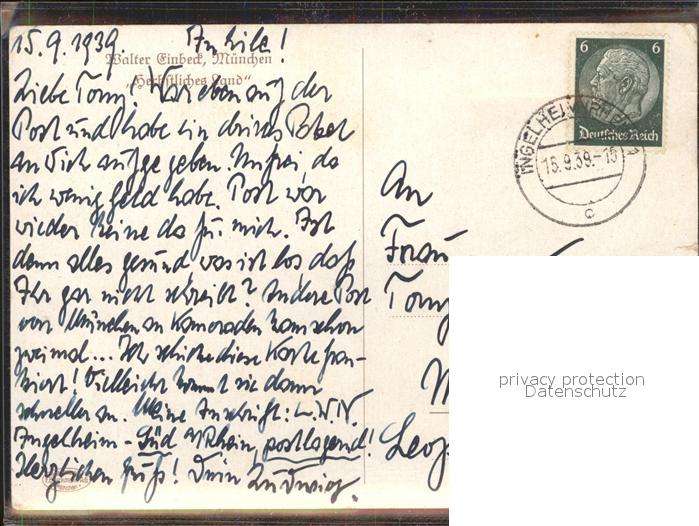 15.9.1939. In Eile!
Walter Einbeck, München
„Herbstliches Land“
Liebe Tony! War eben auf der
Post und habe ein drittes Paket
an Dich aufgegeben. Unfrei, da
ich wenig Geld habe. Post war
wieder keine da für mich. Ist
denn alles gesund, was ist los daß
Ihr gar nicht schreibt? Andere Post
von München an Kameraden kam schon
zweimal... Ich schicke diese Karte fran-
kiert! Vielleicht kommt sie dann
schneller an. Meine Anschrift: L.W.N.
Ingelheim-Süd a/Rhein, postlagernd!
Herzlichen Gruß! Dein Ludwig.
6 6
Deutsches Reich
INGELHEIM
15.9.39.-15
c
An
Frau
Tony
Leop
privacy protection
Datenschutz